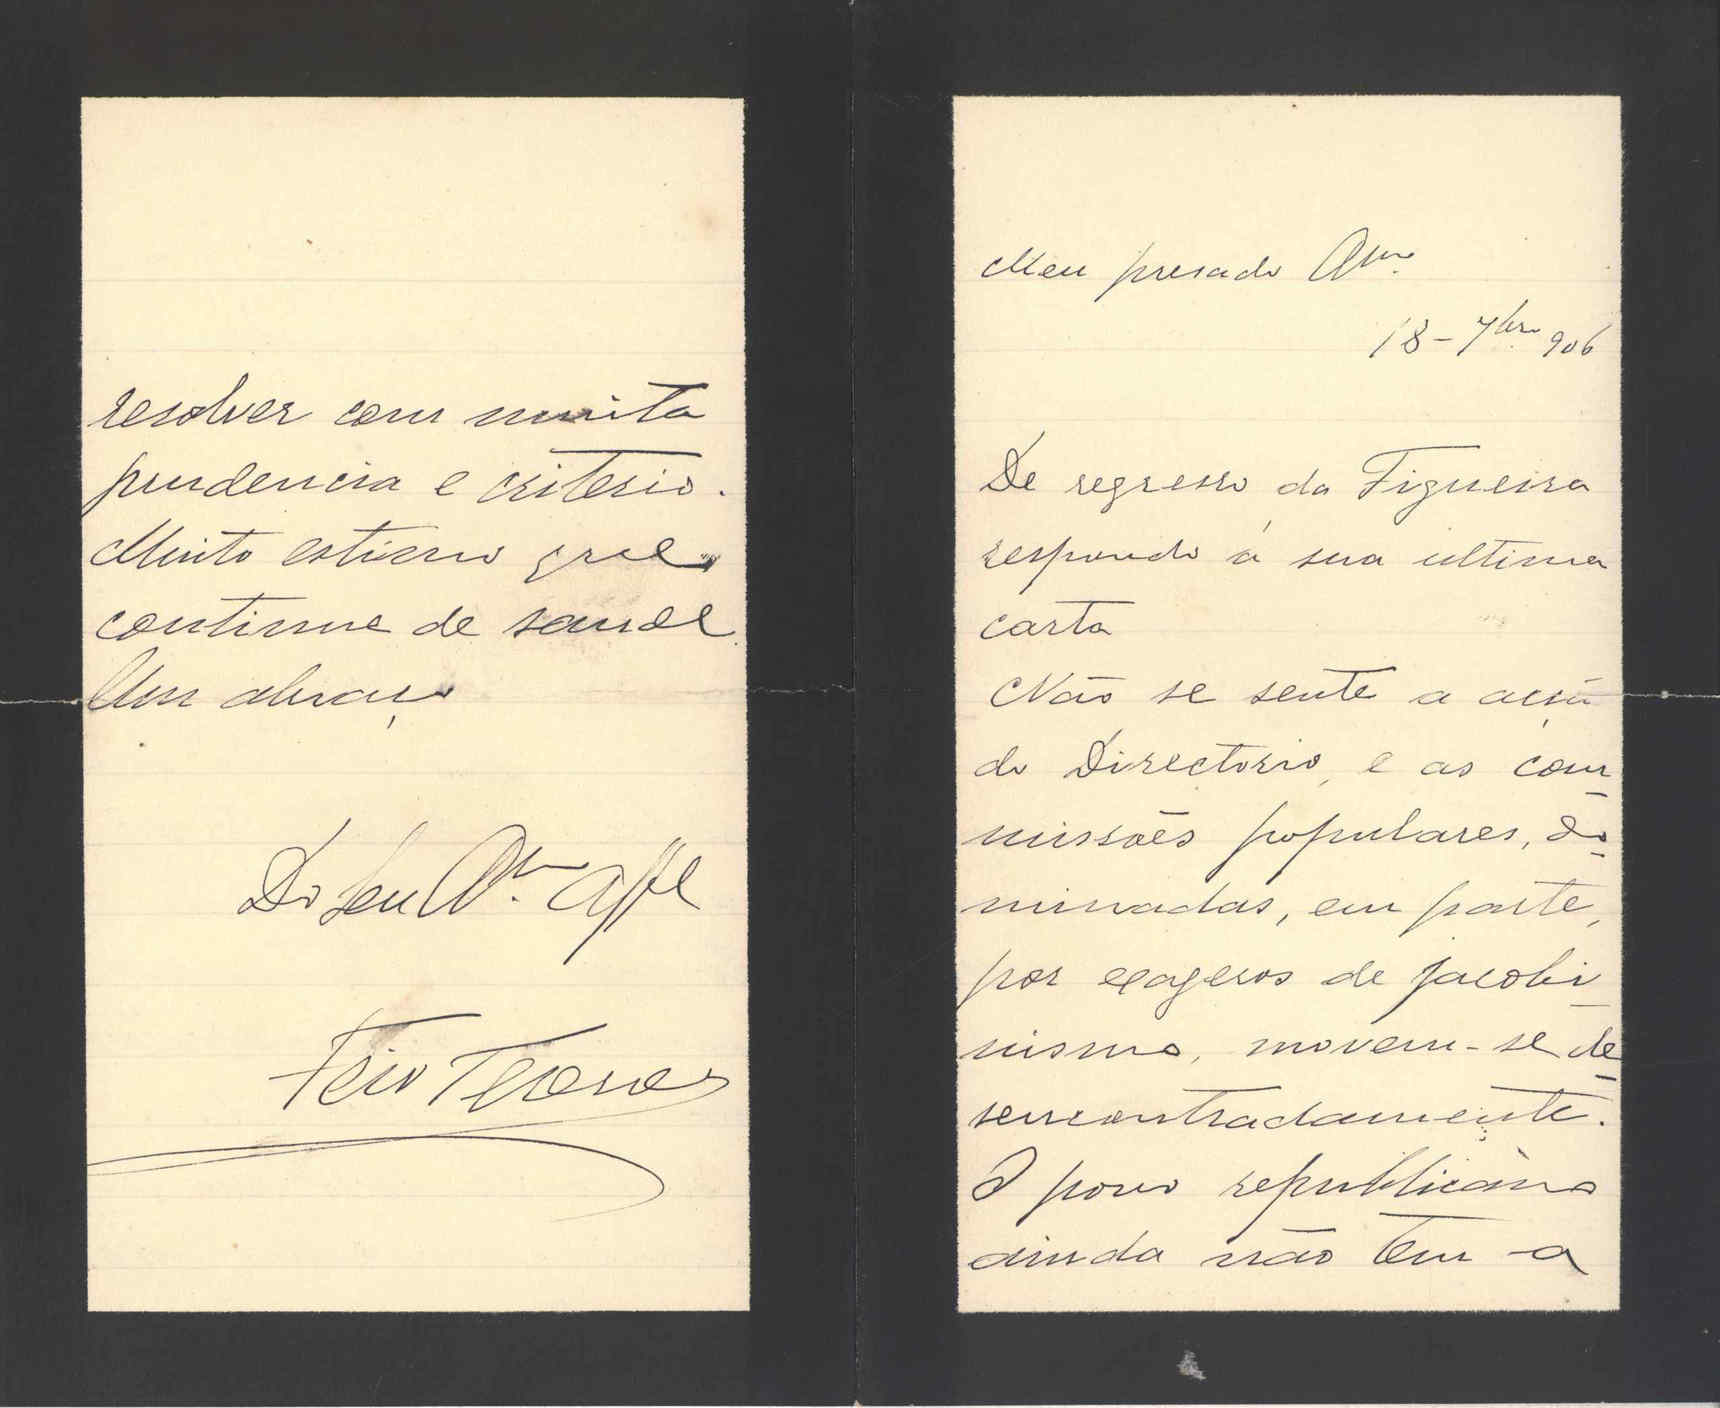 Meu presado Am.º
18-7bro 906
De regresso da Figueira
respondo á sua ultima
carta
Não se sente a acção
do Directorio, e as com
missões populares, do
minadas, em parte,
por exageros de jacobi
nismo, movem-se de
sencontradamente.
O povo republicano
ainda não tem a
resolver com muita
prudencia e criterio.
Muito estimo que
continue de saude.
Um abraço
Do seu Am.º aff.e
Feio Terenas